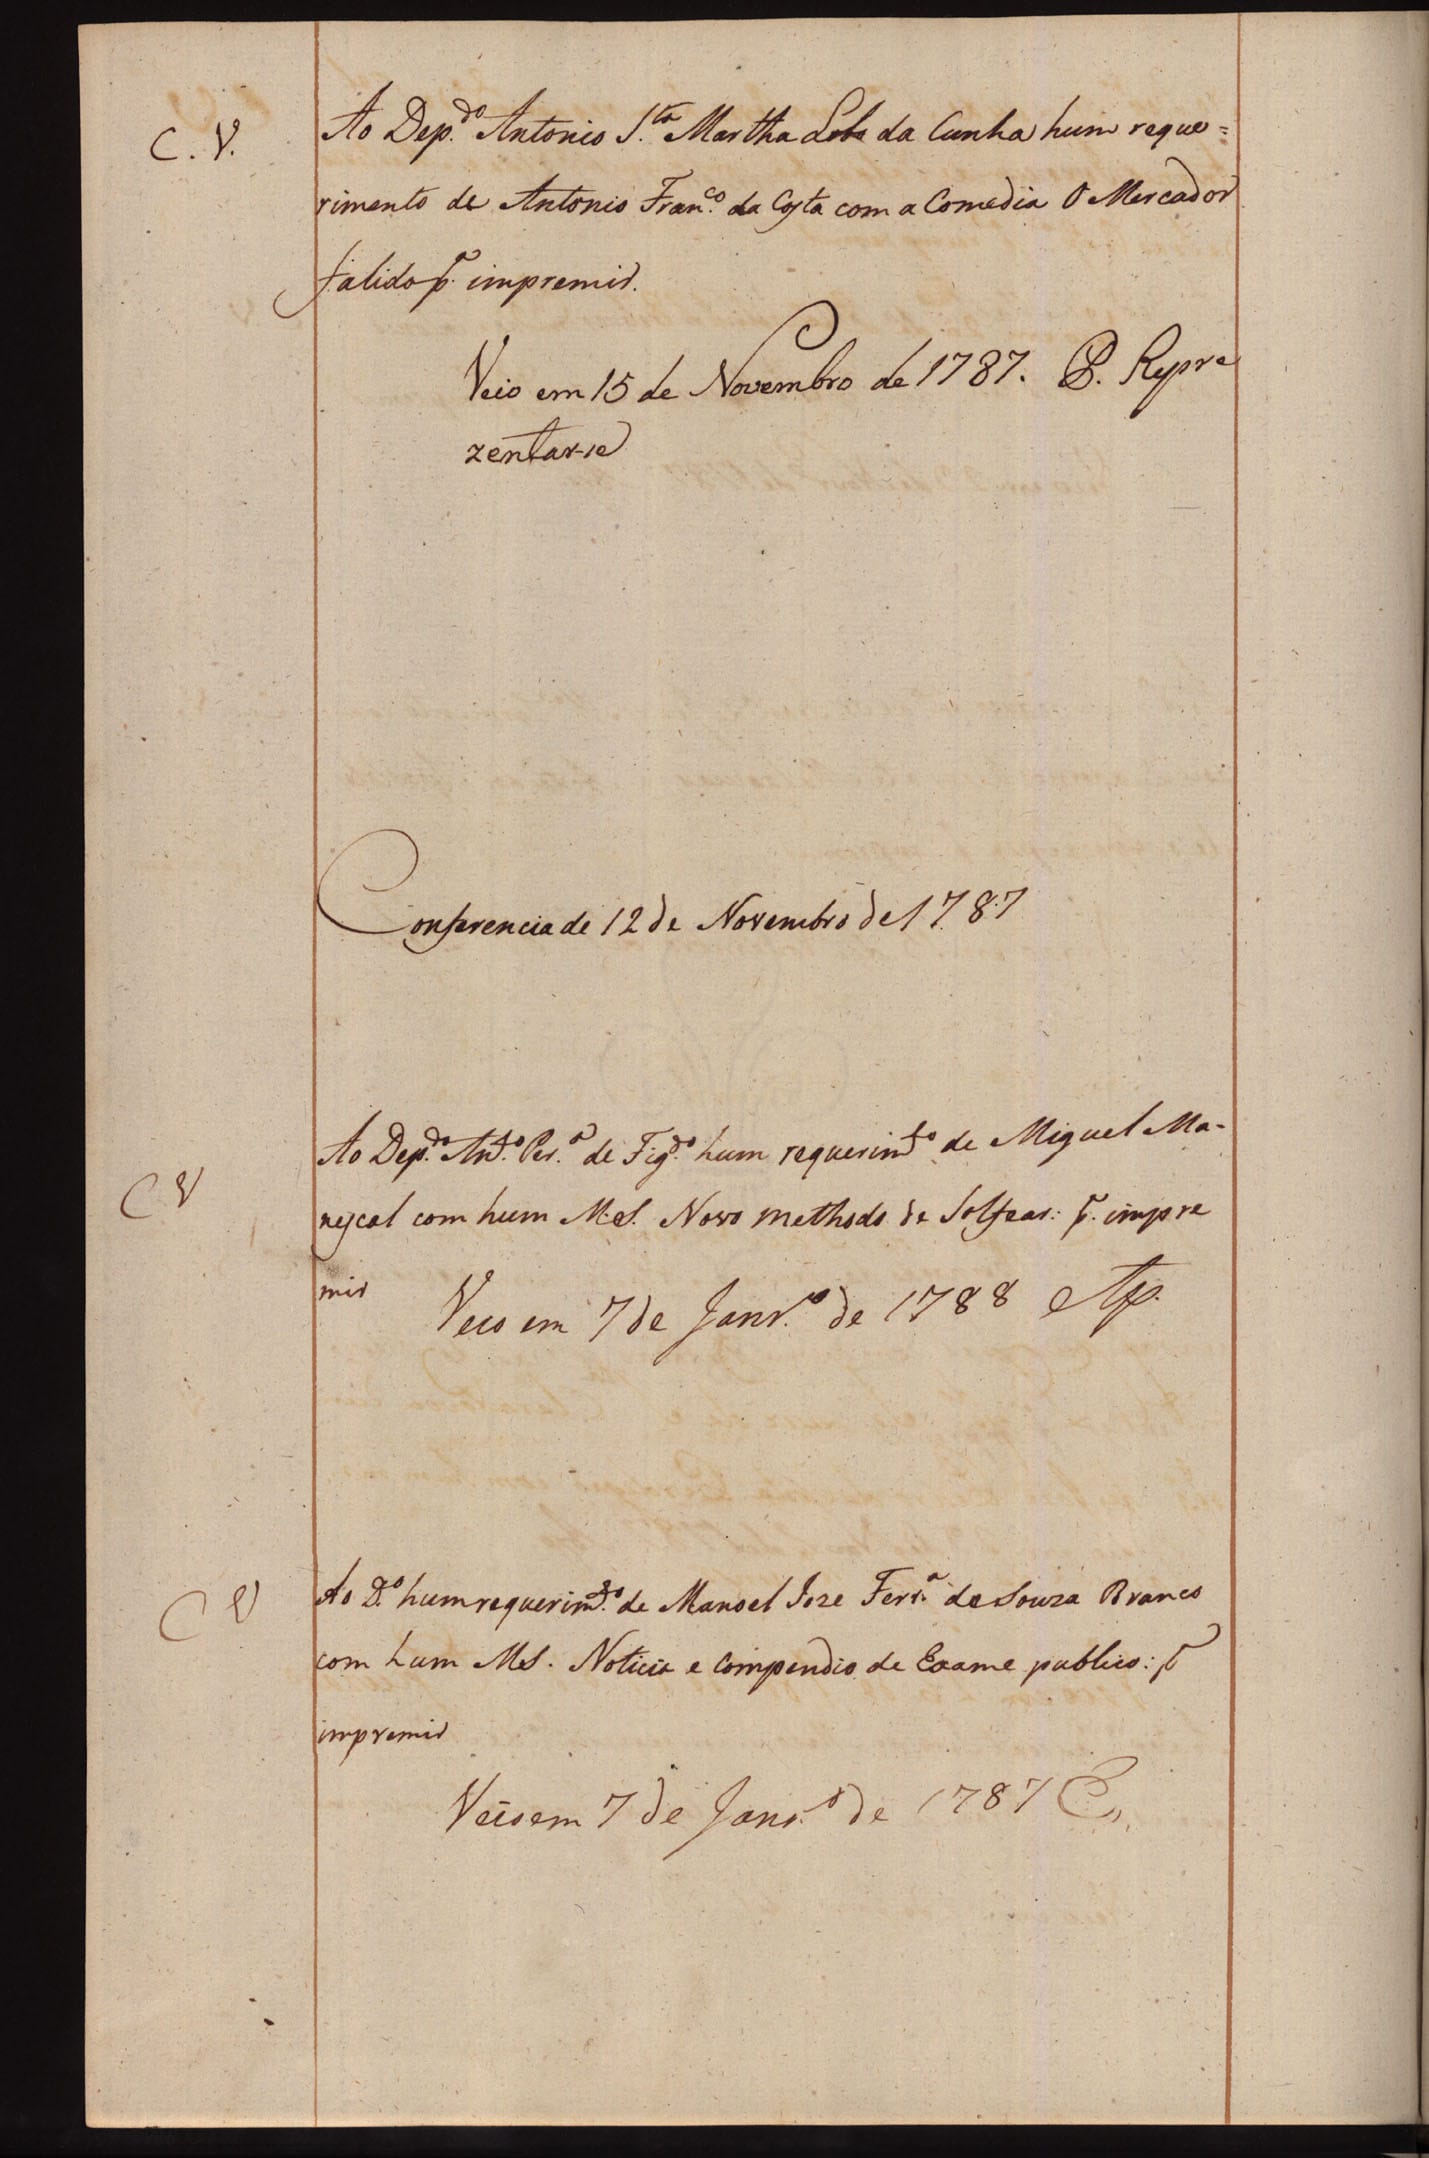 C. V.
Ao Dep.do Antonio S.ta Martha Lobo da Cunha hum reque=
rimento de Antonio Fran.co da Costa com a Comedia O Mercador
falido p.a impremir.
Veio em 15 de Novembro de 1787. P. Repre
zentar-se
Conferencia de 12 de Novembro de 1787
C V
Ao Dep.do Ant.o Per.a de Fig.do hum requerim.to de Miguel Ma-
nescal com hum M.S. Novo methodo de Solfear: p.a impre
mir
Veio em 7 de Janr.o de 1788
C V
Ao D.o hum requerim.to de Manoel Joze Ferr.a de Souza Branco
com hum MS. Noticia e Compendio de Exame publico: p.a
impremir
Veio em 7 de Janr.o de 1787